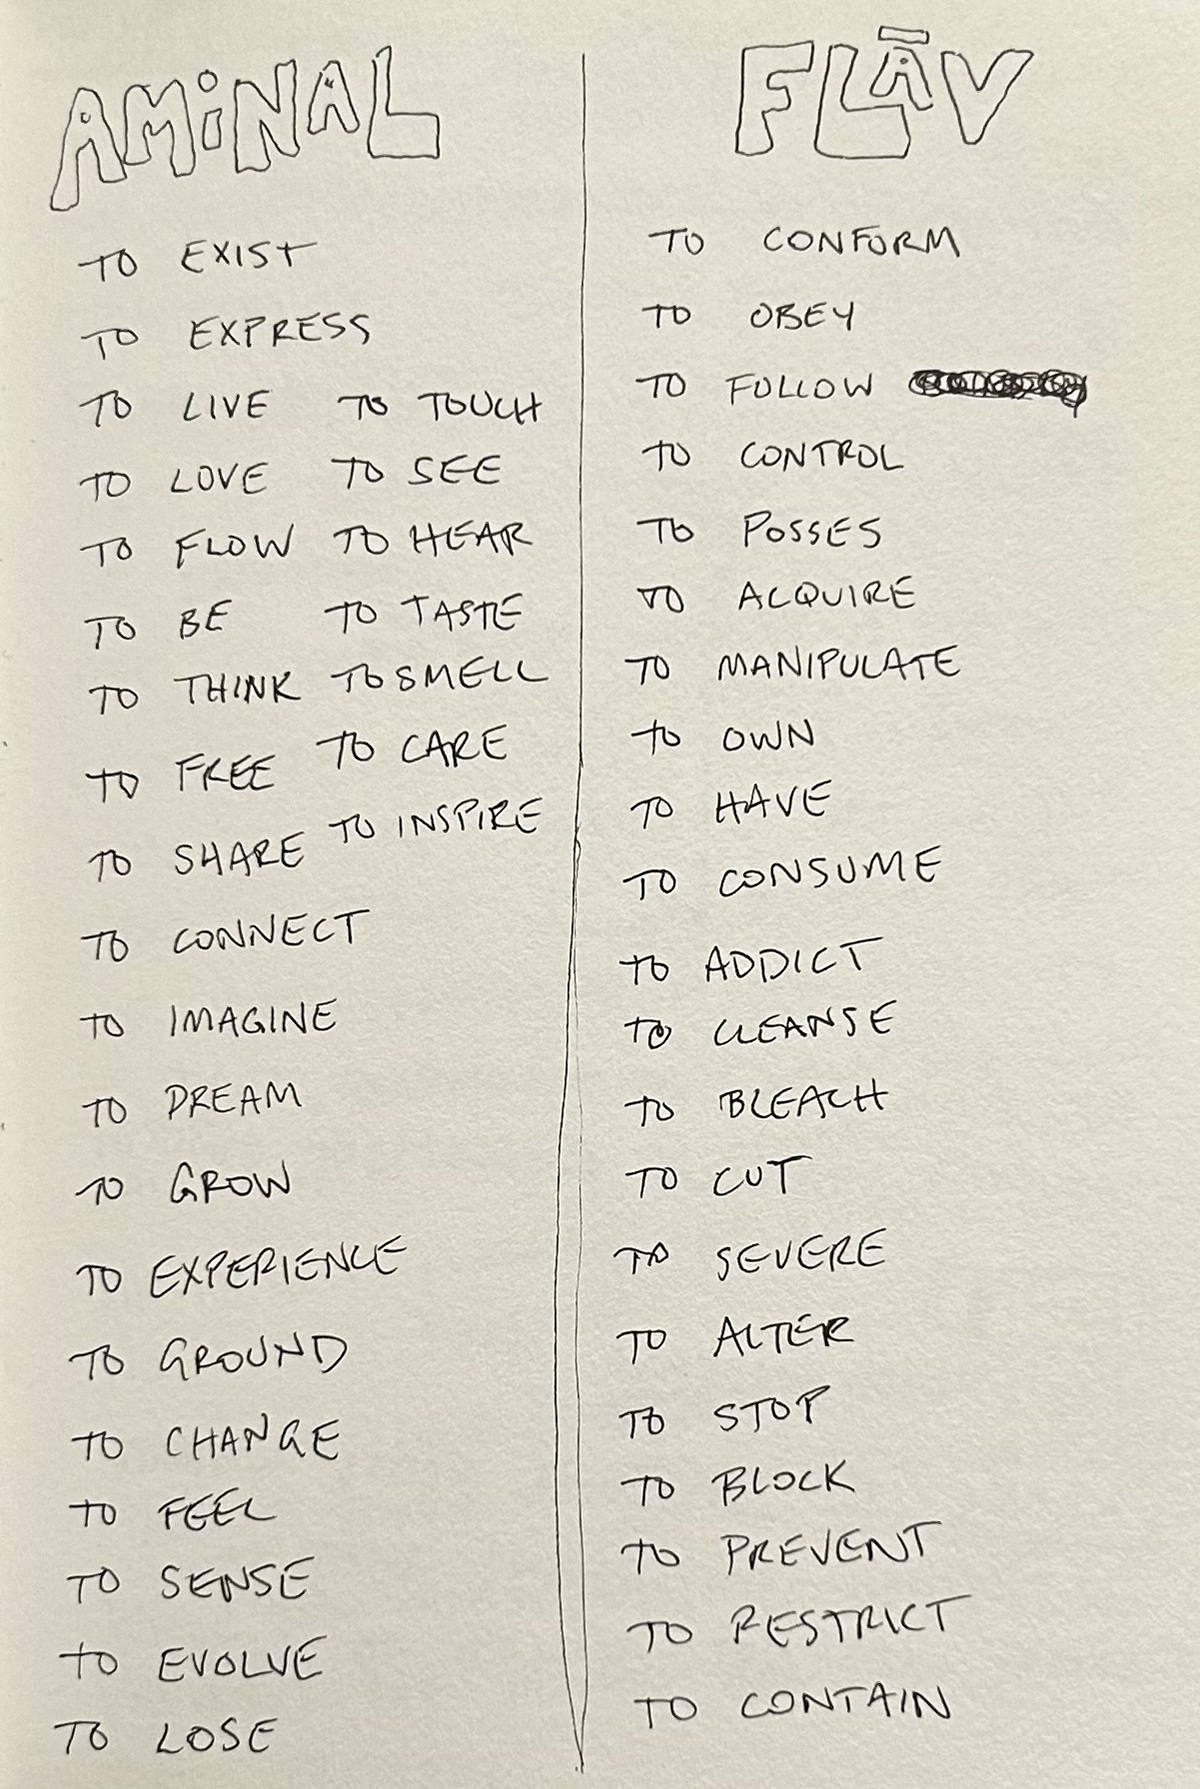 AMiNAL
TO EXIST
TO EXPRESS
TO LIVE
TO LOVE
TO FLOW
TO BE
TO THINK
TO FREE
TO SHARE
TO CONNECT
TO IMAGINE
TO DREAM
TO GROW
TO EXPERIENCE
TO GROUND
TO CHANGE
TO FEEL
TO SENSE
TO EVOLVE
TO LOSE
TO TOUCH
TO SEE
TO HEAR
TO TASTE
TO SMELL
TO CARE
TO INSPIRE
FLĀV
TO CONFORM
TO OBEY
TO FOLLOW
TO CONTROL
TO POSSES
TO ACQUIRE
TO MANIPULATE
TO OWN
TO HAVE
TO CONSUME
TO ADDICT
TO CLEANSE
TO BLEACH
TO CUT
TO SEVERE
TO ALTER
TO STOP
TO BLOCK
TO PREVENT
TO RESTRICT
TO CONTAIN